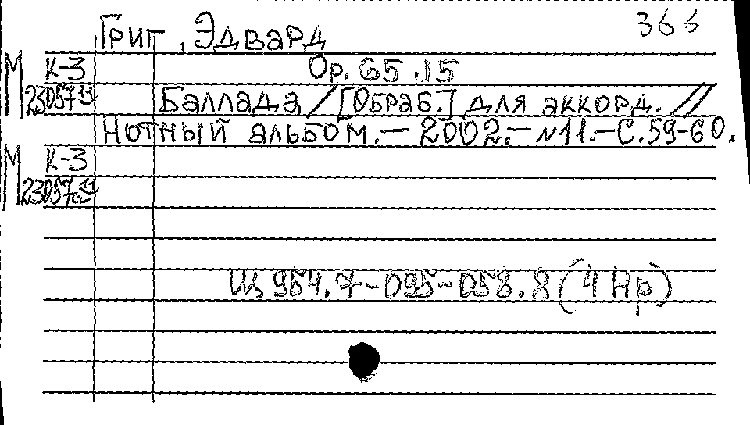 366
Григ, Эдвард
К-3 Op. 65.15
М 23057
Баллада / [Обраб.] для аккорд. //
Нотный альбом. — 2002. — №11. — С. 59-60.
М К-3
23057
Щ 954.7-095-058.8 (4 Нр)